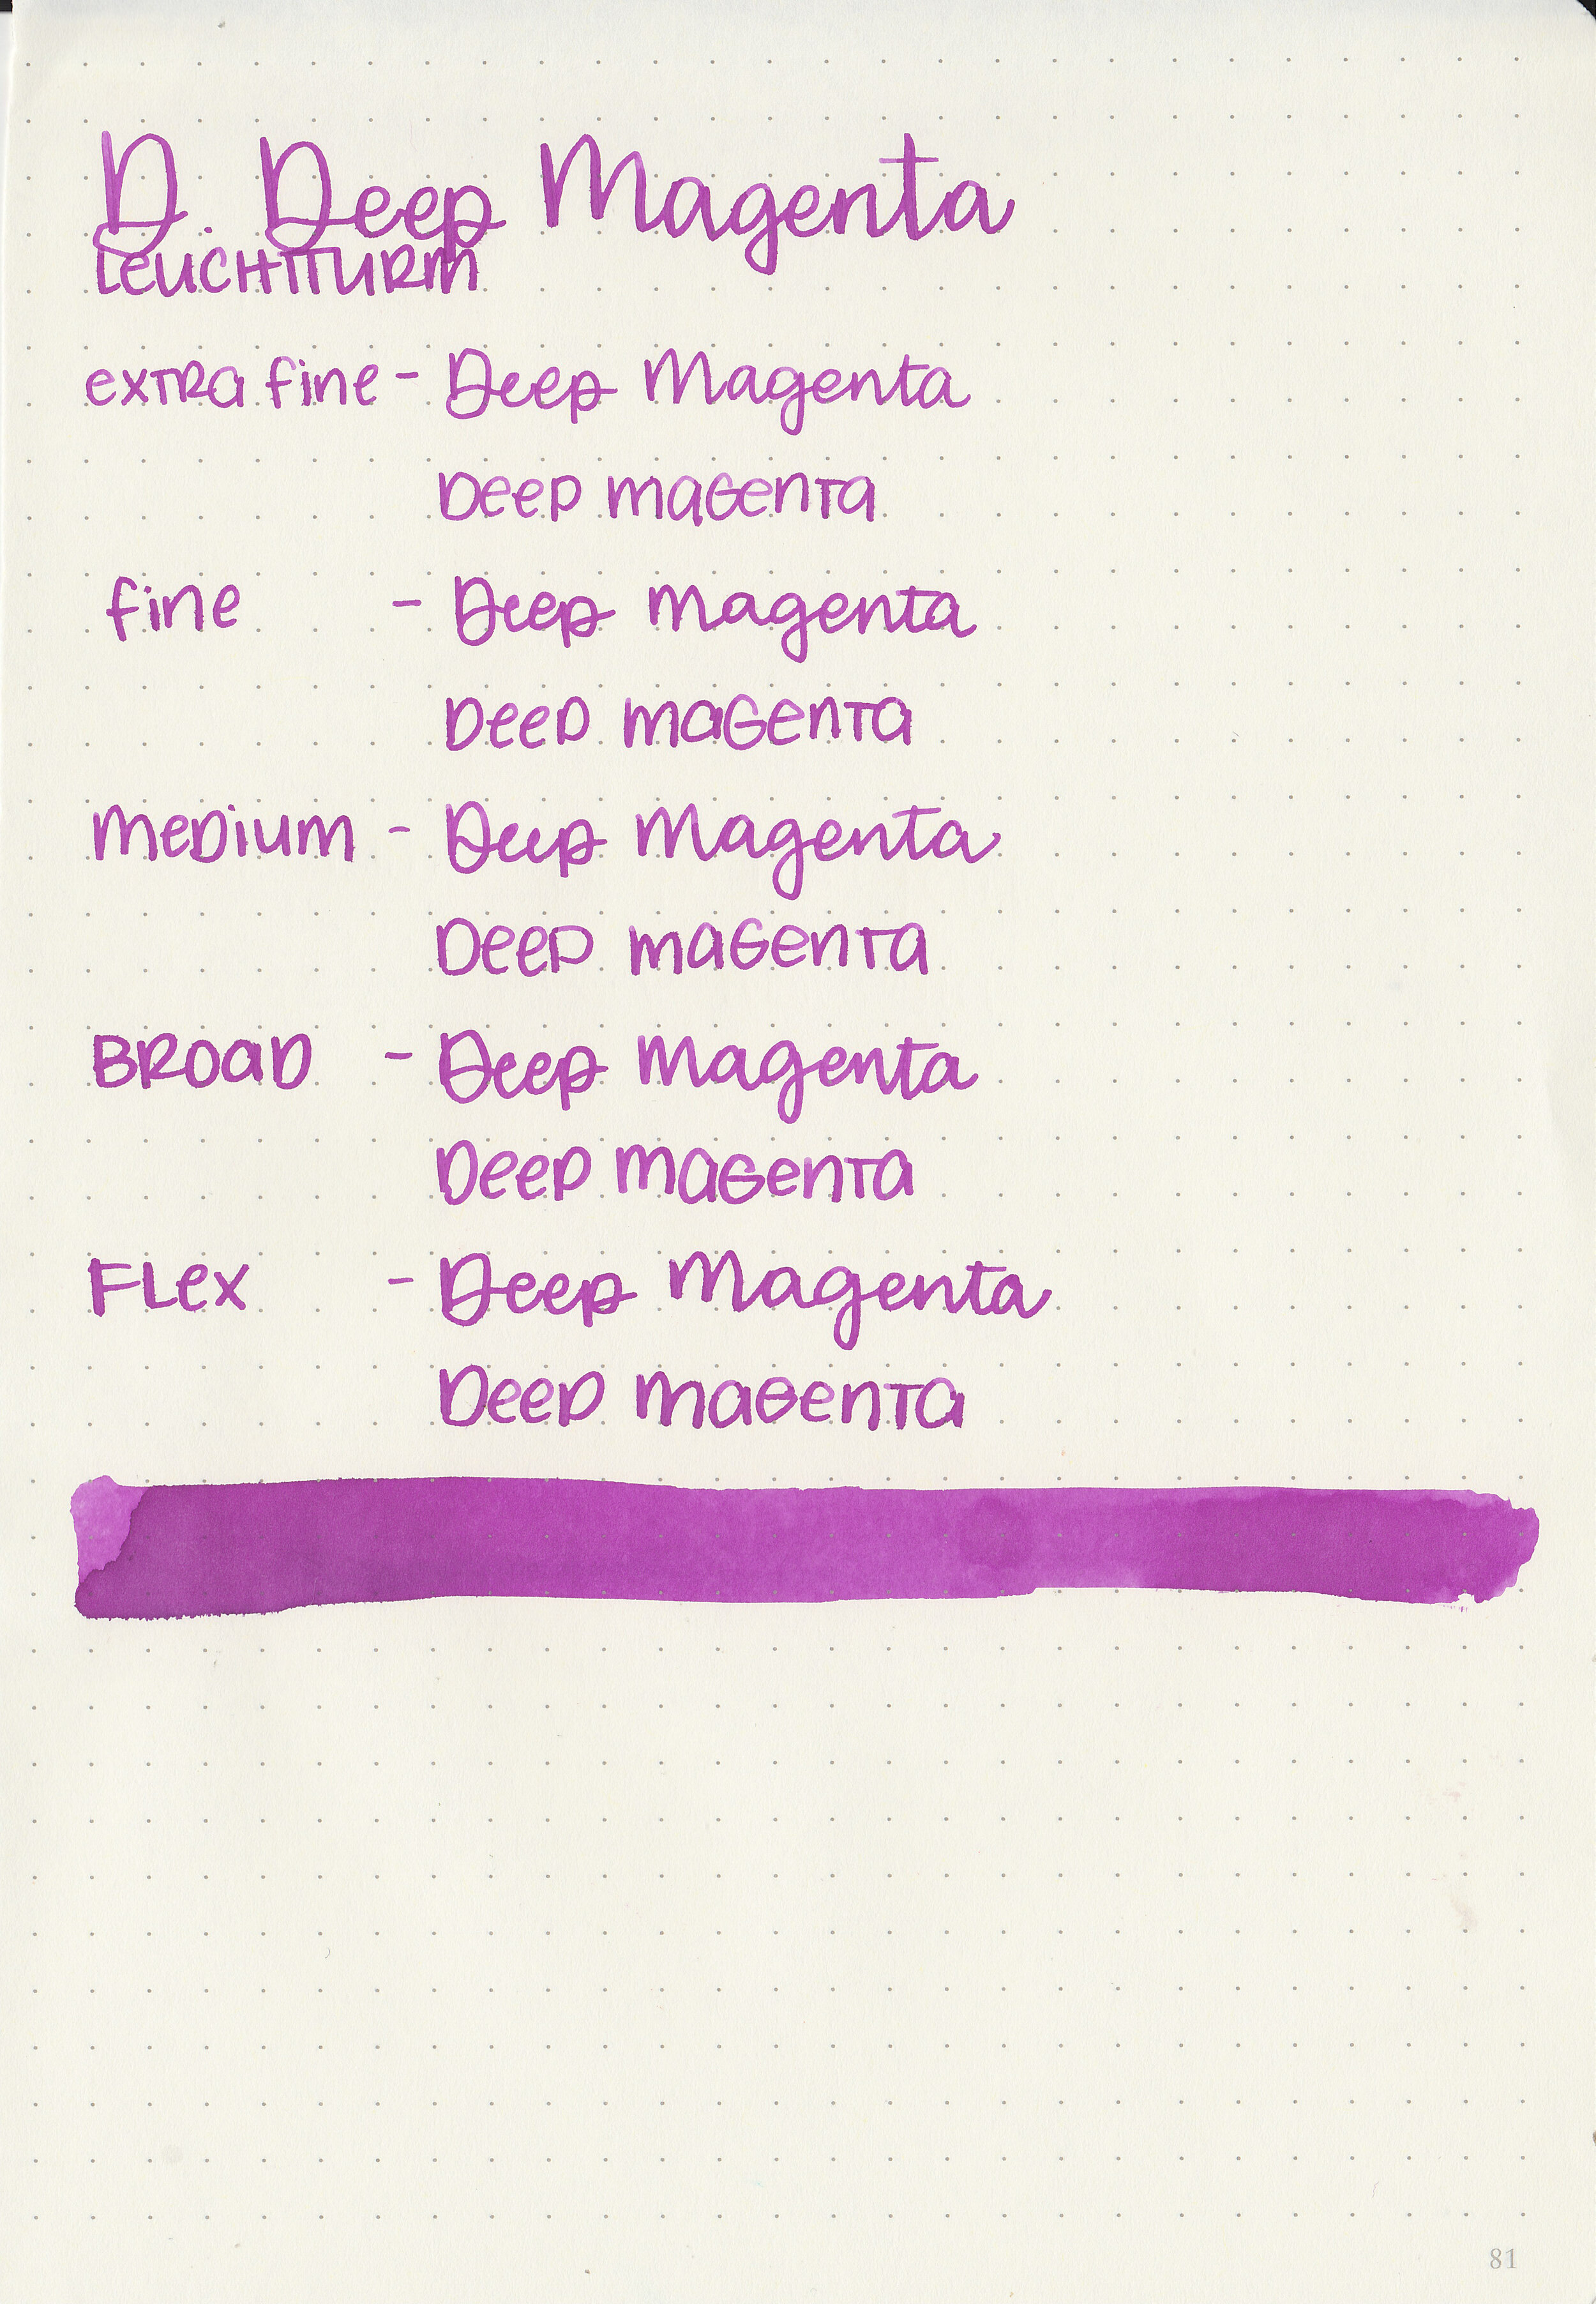 D. Deep Magenta
Leuchtturm
extra fine - Deep Magenta
Deep magenta
fine - Deep Magenta
Deep magenta
medium - Deep Magenta
Deep magenta
Broad - Deep Magenta
Deep magenta
Flex - Deep Magenta
Deep magenta
81